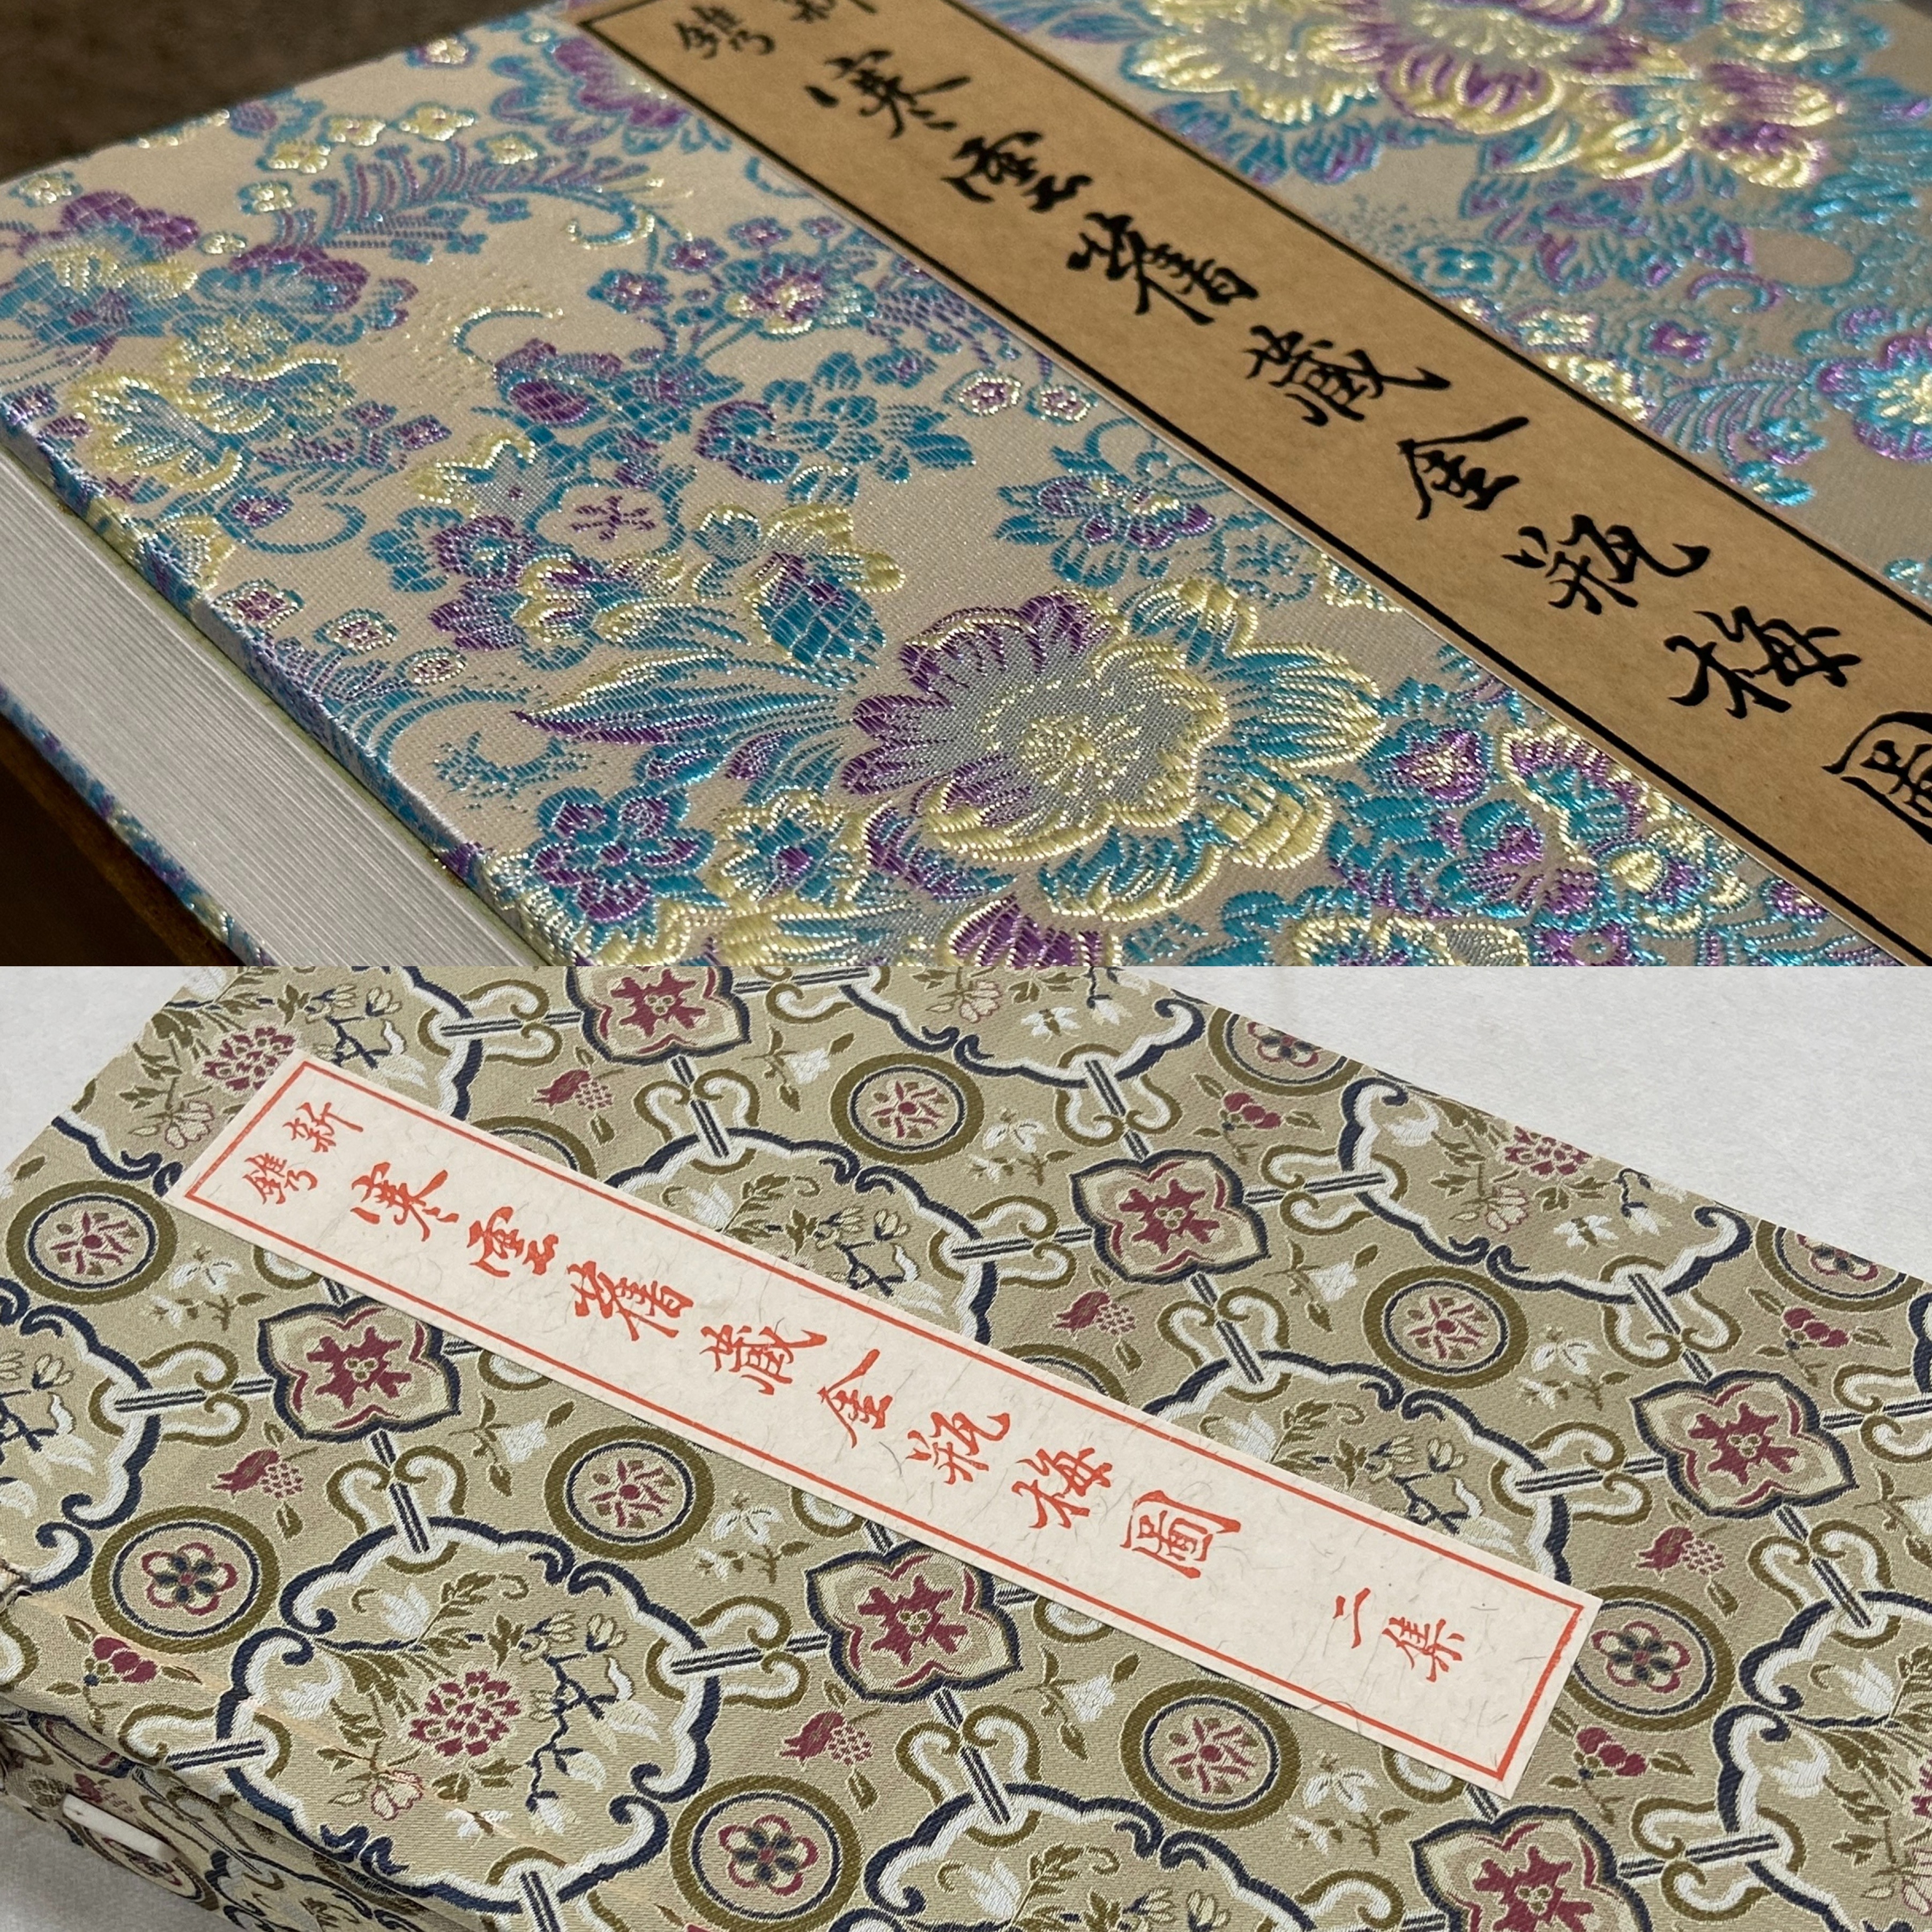 新鐫
寒雲舊藏金瓶梅圖
新鐫
寒雲舊藏金瓶梅圖
二集